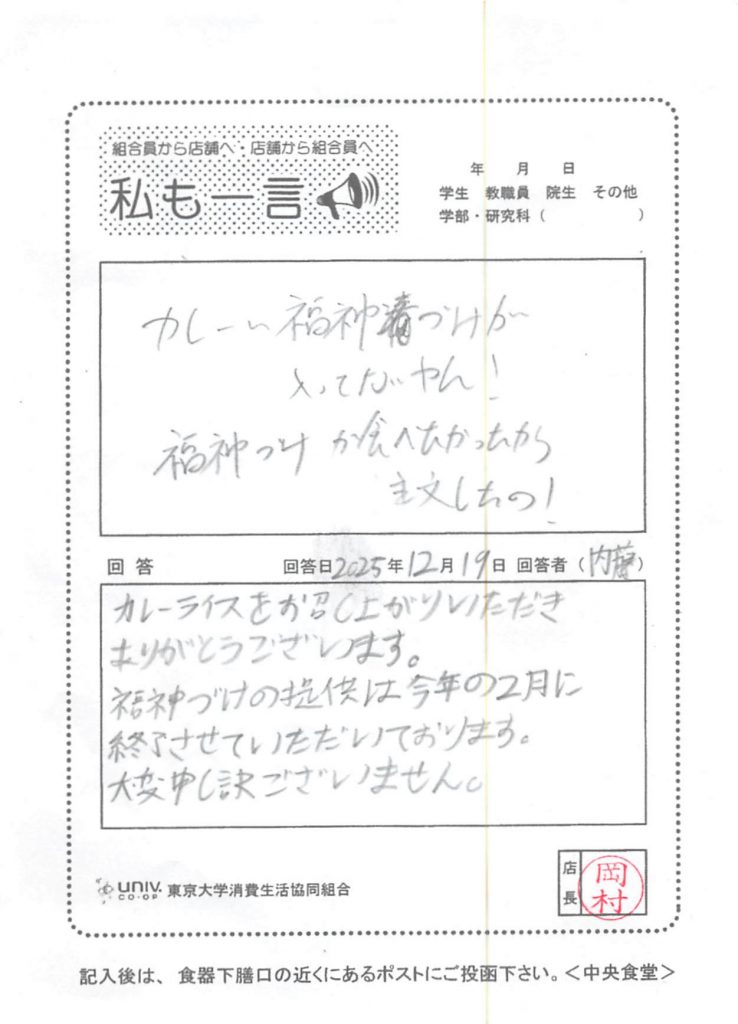 組合員から店舗へ・店舗から組合員へ
私も一言
年 月 日
学生 教職員 院生 その他
学部・研究科( )
カレーに福神漬づけが
入ってないやん!
福神づけが食べたかったから
主文したの!
回答 回答日2025年12月19日 回答者(内藤)
カレーライスをお召し上がりいただき
ありがとうございます。
福神づけの提供は今年の2月に
終了させていただいております。
大変申し訳ございません。
UNIV. CO-OP 東京大学消費生活協同組合
店長 岡村
記入後は、食器下膳口の近くにあるポストにご投函下さい。<中央食堂>